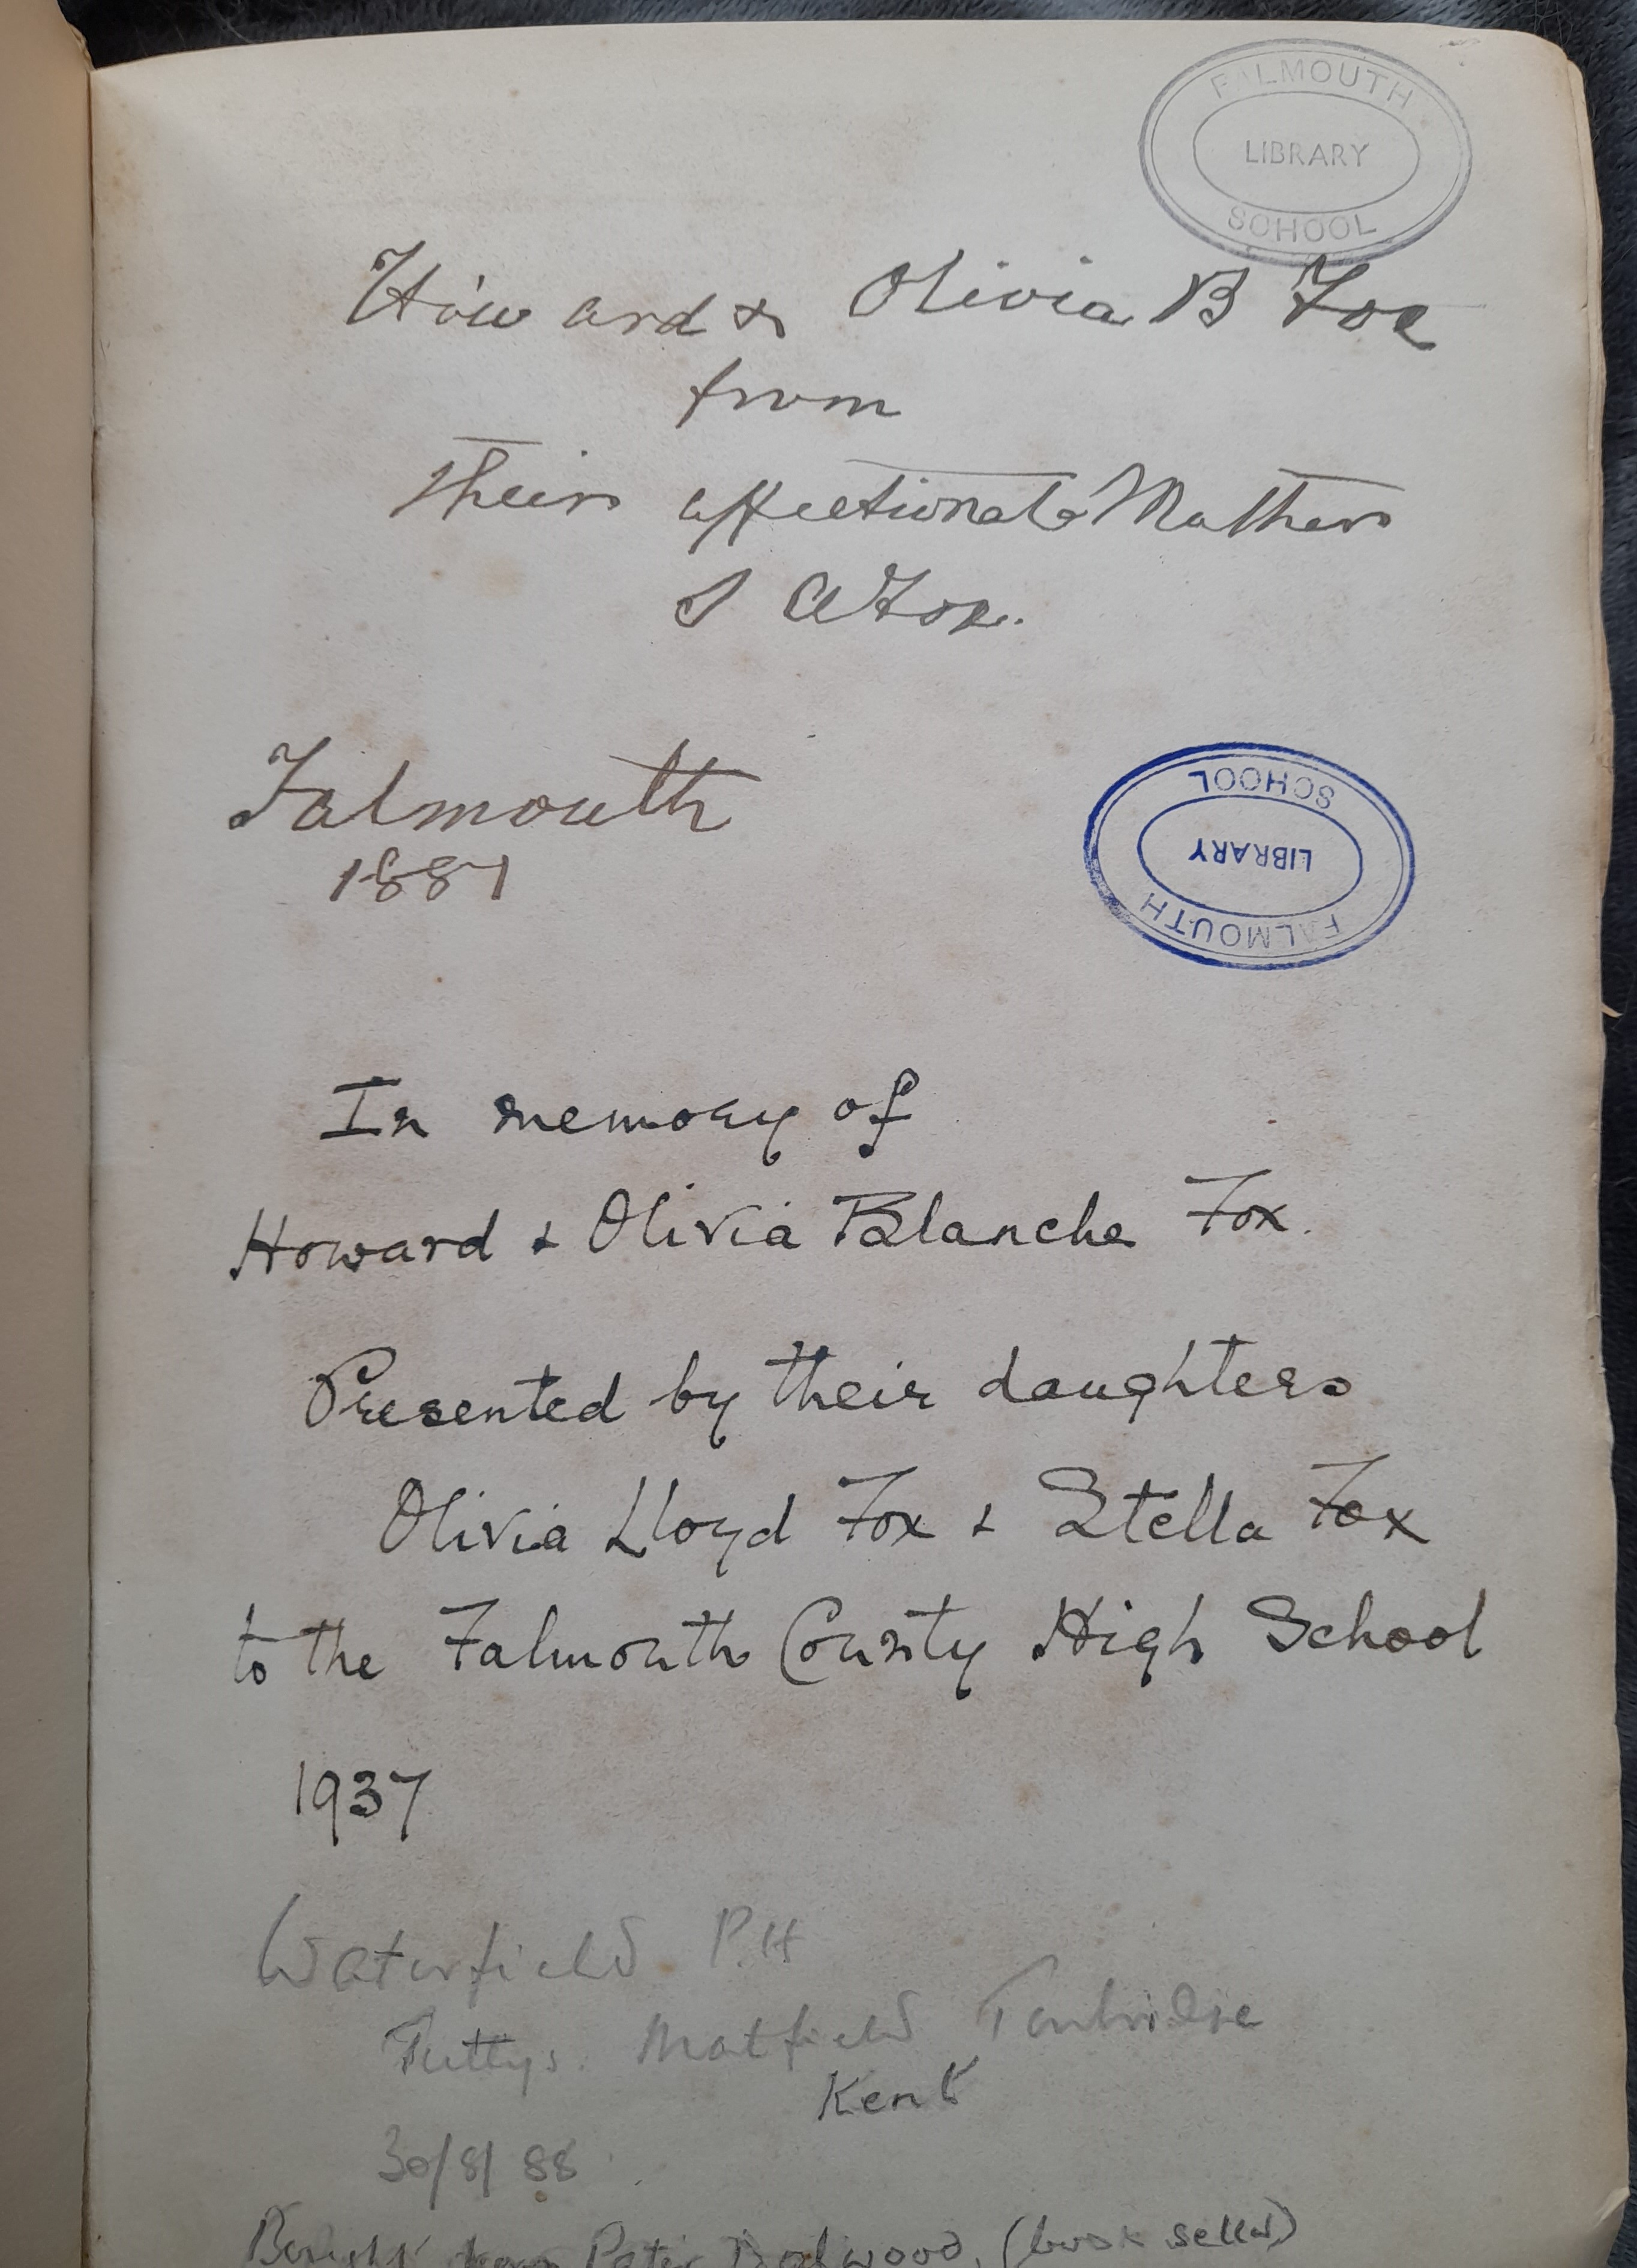 FALMOUTH
LIBRARY
SCHOOL
Howard & Olivia B Fox
from
Their affectionate Mother
A Fox.
Falmouth
1887
SCHOOL
LIBRARY
FALMOUTH
In memory of
Howard & Olivia Blanche Fox.
Presented by their daughters
Olivia Lloyd Fox & Stella Fox
to the Falmouth County High School
1937
Waterfield P.H
Matfield Tonbridge
Kent
30/8/88
Bought from Peter (book seller)